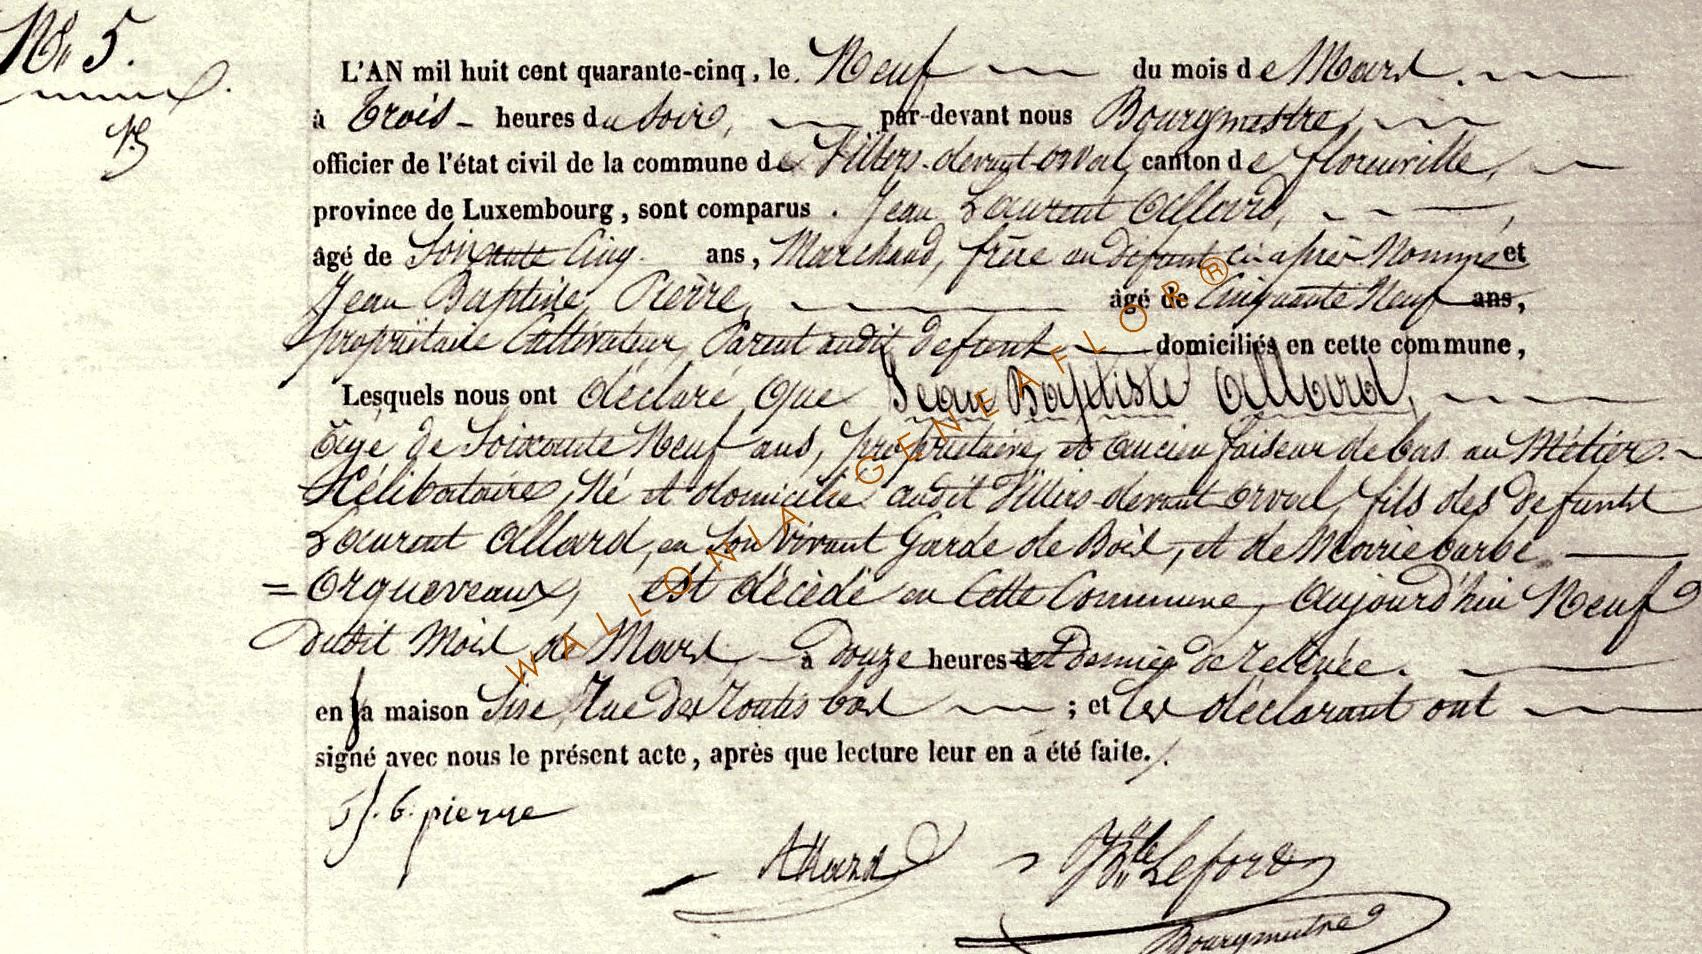 No. 5.
L'AN mil huit cent quarante-cinq, le Neuf du mois de Mars.
à Trois heures du soir, par-devant nous Bourgmestre,
officier de l'état civil de la commune de Villers-devant-orval, canton de florenville,
province de Luxembourg, sont comparus. Jean Laurent Allard,
âgé de Soixante Cinq ans, Marchand, frère au défunt ci-après Nommé et
Jean Baptiste Pierre, âgé de Cinquante Neuf ans,
propriétaire Cultivateur, Parent audit défunt domiciliés en cette commune,
Lesquels nous ont déclaré que Jean Baptiste Allard,
Âgé de Soixante Neuf ans, propriétaire, et ancien faiseur de bas au Métier.
Célibataire, Né et domicilié audit Villers-devant-orval, fils des défunts
Laurent Allard, en son vivant Garde de Bois, et de Marie barbe
= Orqueveaux, est décédé en cette Commune, aujourd'hui Neuf
dudit Mois de Mars, à Douze heures et Demie de relevée.
en sa maison Sise Rue des Routis bas ; et les déclarant ont
signé avec nous le présent acte, après que lecture leur en a été faite.
J. b. pierre
Allard
Bte. Leford
Bourgmestre
WALLONIA GENEAFLOR®